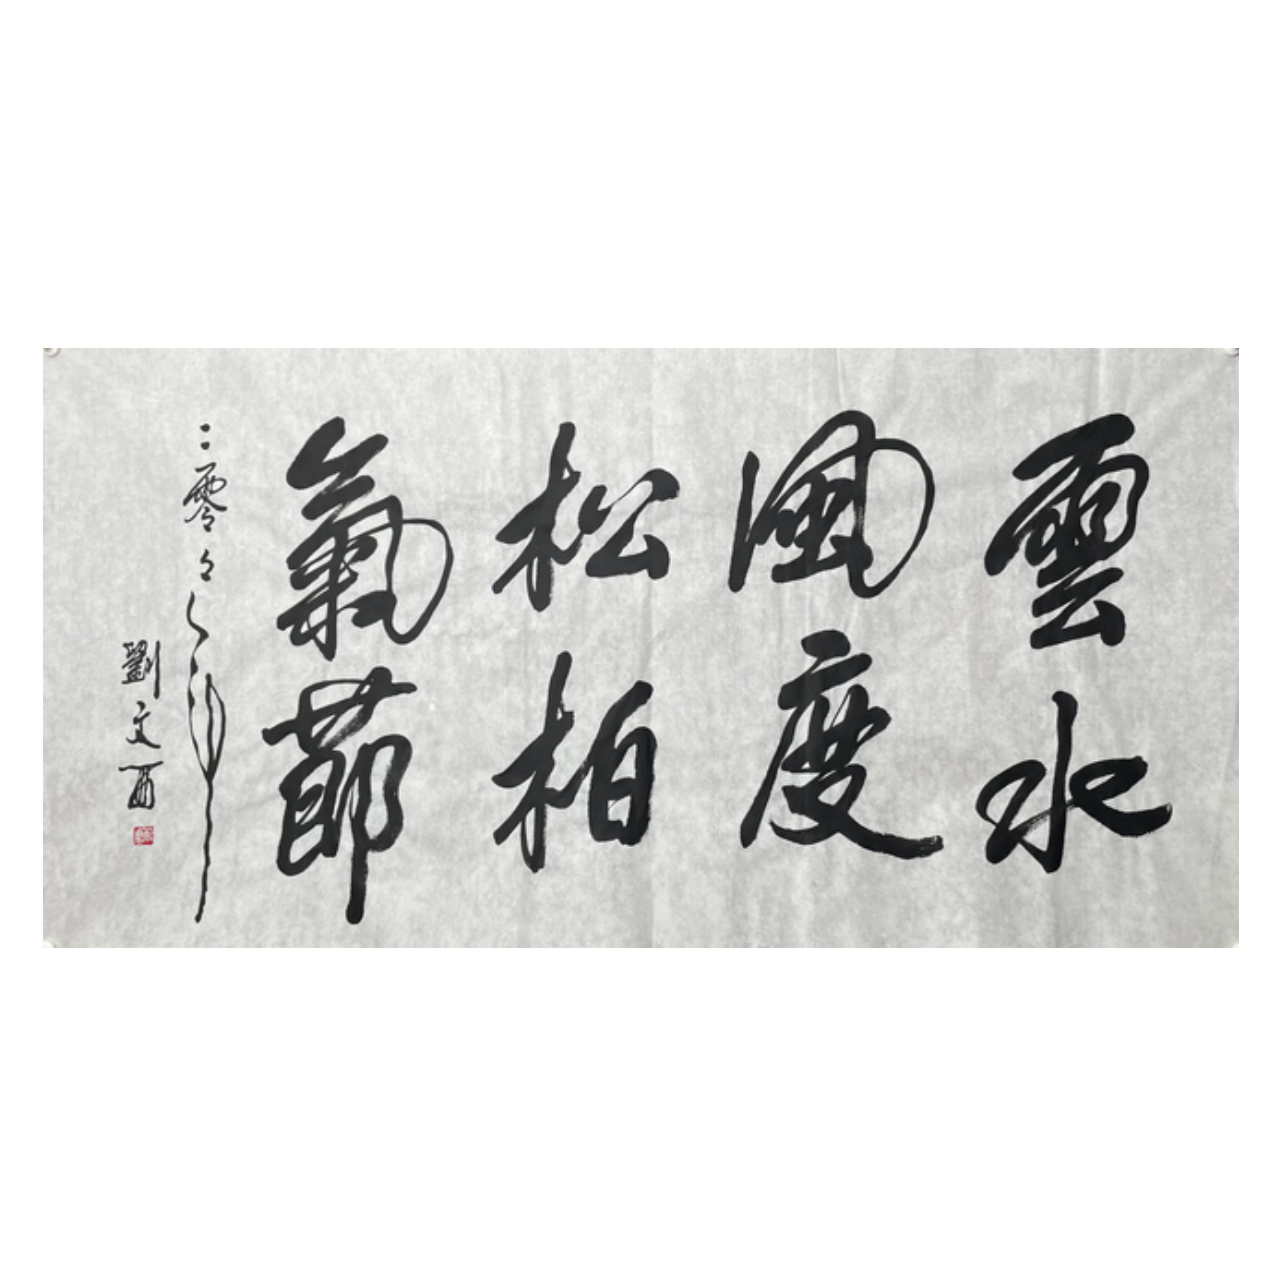 雲水
風度
松柏
氣節
二零
劉文西